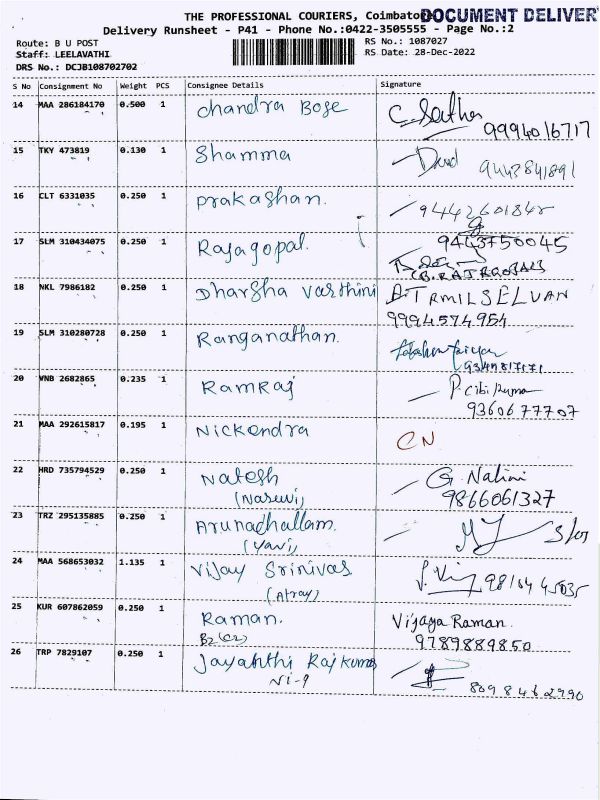 THE PROFESSIONAL COURIERS, Coimbatore
DOCUMENT DELIVER
Delivery Runsheet - P41 - Phone No.:0422-3505555 - Page No.:2
Route: B U POST
RS No.: 1087027
Staff: LEELAVATHI
RS Date: 28-Dec-2022
DRS No.: DCJB108702702
S No Consignment No Weight PCS Consignee Details Signature
14 MAA 286184170 0.500 1 Chandra Bose
9994016717
15 TKY 473819 0.130 1 Shamma
9443841891
16 CLT 6331035 0.250 1 Prakashan.
17 SLM 310434075 0.250 1 Rajagopal. 9443750045
18 NKL 7986182 0.250 1 Dharsha Varthini A.TAMILSELVAN
9994574954
19 SLM 310280728 0.250 1 Ranganathan.
20 VNB 2682865 0.235 1 Ramraj
9360677707
21 MAA 292615817 0.195 1 Nickendra CN
22 HRD 735794529 0.250 1 Natesh G. Nalini
9866061327
23 TRZ 295135885 0.250 1 Arunachallam.
24 MAA 568653032 1.135 1 Vijay Srinivas
25 KUR 607862059 0.250 1 Raman. Vijaya Raman.
9789889850
26 TRP 7829107 0.250 1 Jayanthi Rajkumar
8098462990